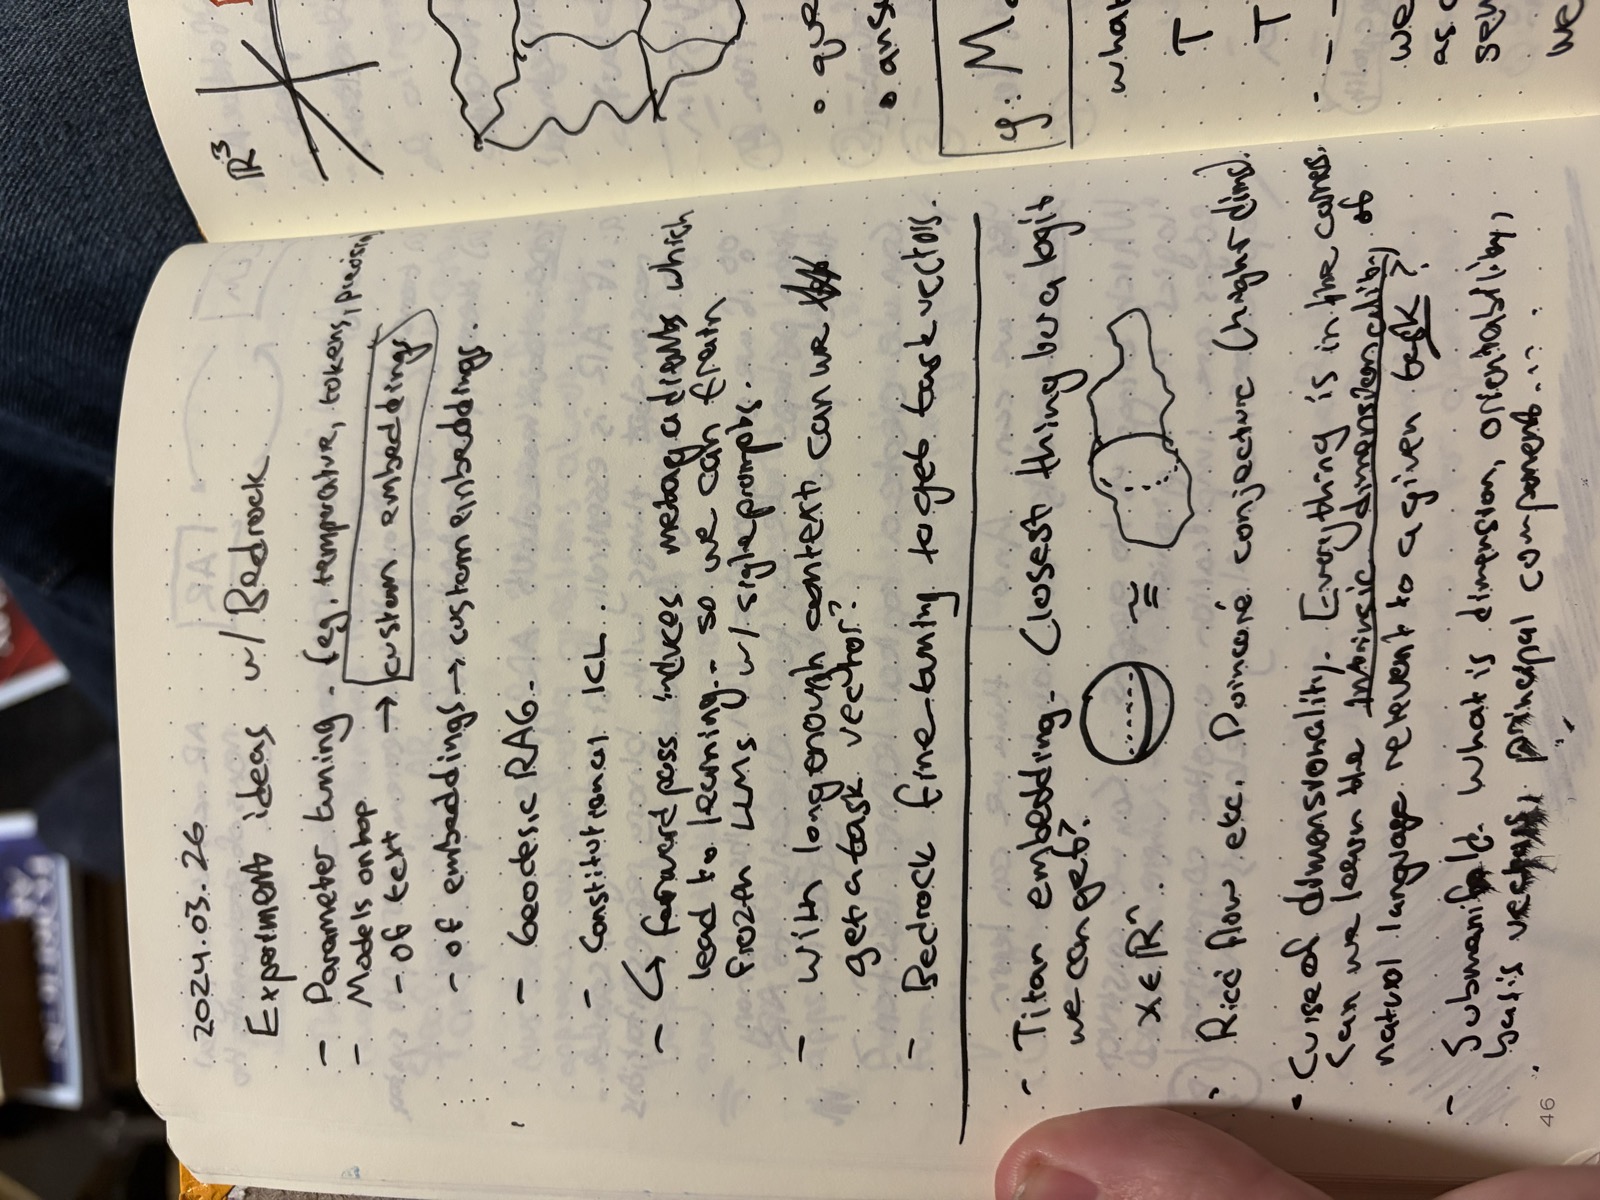 2024.03.26
Experiment ideas w/ Bedrock
- Parameter tuning. (eg, temperative, tokens,
- Models on top
- of text → custom embeddings
- of embeddings → custom embeddings.
- Geodesic RAG.
- Constitutional ICL.
- ↳ forward pass induces metagradients which
lead to learning.- so we can train
frozen LLMs w/ single prompts.
- with long enough context can we
get a task vector?
- Bedrock fine-tuning to get task vectors.
- Titan embedding. Closest thing to a logit
we can get?
x ∈ ℝⁿ. ≅
• Ricci flow etc. Poincaré conjecture (higher dims).
• Curse of dimensionality. Everything is in the corners.
Can we learn the intrinsic dimensionality of
natural language relevent to a given task?
- Submanifold. what is dimension, orientability,
basis vectors, principal components...
46
ℝ³
• que
• ans
φ: M
what
T
T
we
as
we